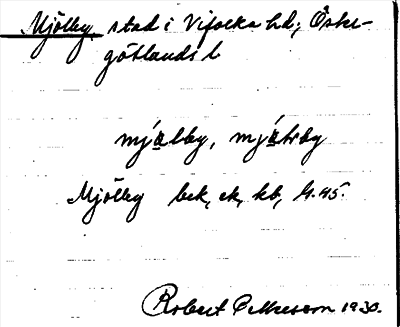 Mjölby, stad i Vifolka hd, Öster-
götlands l
mjálby, mjátrby
Mjölby bek, ek, kb, 4.45.
Robert 1930.